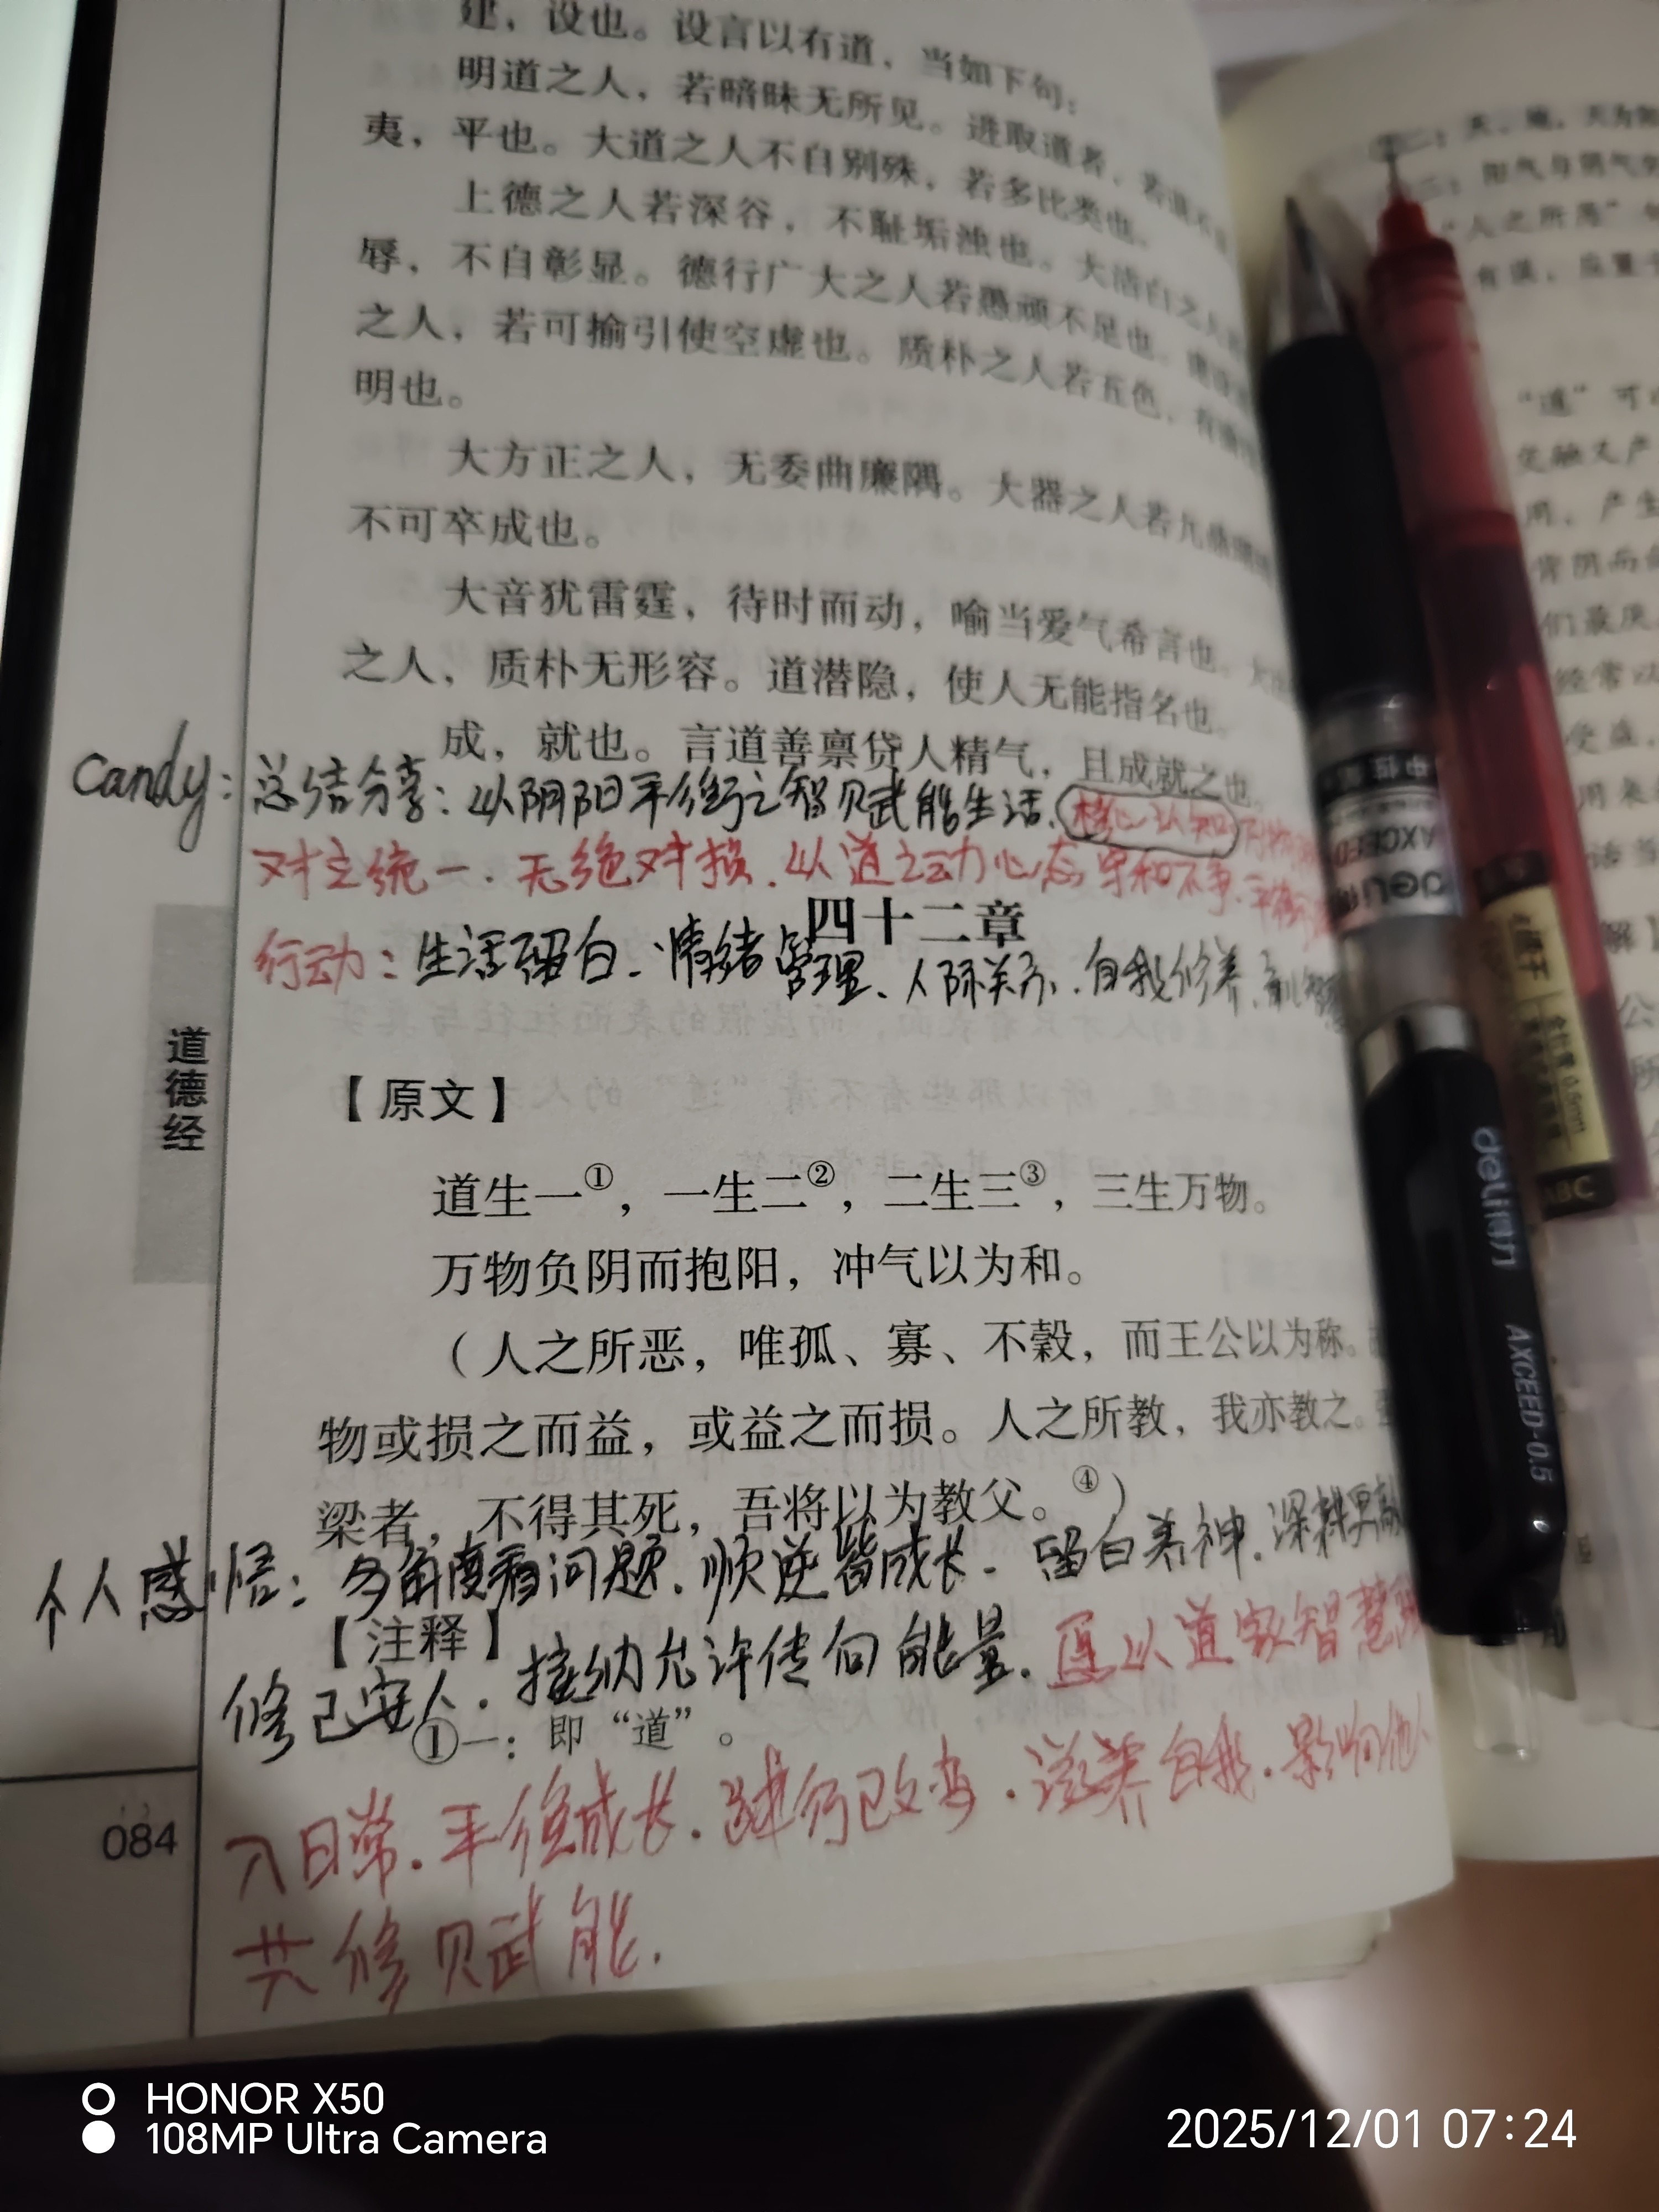 建，设也。设言以有道，当如下句：
明道之人，若暗昧无所见。进取道者，若退不
夷，平也。大道之人不自别殊，若多比类也。
上德之人若深谷，不耻垢浊也。大洁白之人
辱，不自彰显。德行广大之人若愚顽不足也。
之人，若可揄引使空虚也。质朴之人若五色，有
明也。
大方正之人，无委曲廉隅。大器之人若九鼎
不可卒成也。
大音犹雷霆，待时而动，喻当爱气希言也。大
之人，质朴无形容。道潜隐，使人无能指名也。
成，就也。言道善禀贷人精气，且成就之也。
Candy：总结分享：以阴阳平衡之智赋能生活．核心认知
对立统一．无绝对损．以道之动力心态守和不争．
四十二章
行动：生活留白．情绪管理、人际关系．自我修养．
道德经
【原文】
道生一①，一生二②，二生三③，三生万物。
万物负阴而抱阳，冲气以为和。
（人之所恶，唯孤、寡、不穀，而王公以为称。
物或损之而益，或益之而损。人之所教，我亦教之。
梁者，不得其死，吾将以为教父。④）
个人感悟：多角度看问题．顺逆皆成长．留白养神．深耕
【注释】
修己安人．接纳允许传向能量．愿以道家智慧
①一：即“道”。
入日常．平衡成长．践行改变．滋养自我．影响他人
共修赋能．
084
deli
AXCEED
deli
AXCEED-0.5
0.5mm
ABC
“人之所恶”
“道”可
交融又产
用，产生
背阴而
们最厌
经常以
受益，
用来
话当
解】
公
所
HONOR X50
108MP Ultra Camera
2025/12/01 07:24